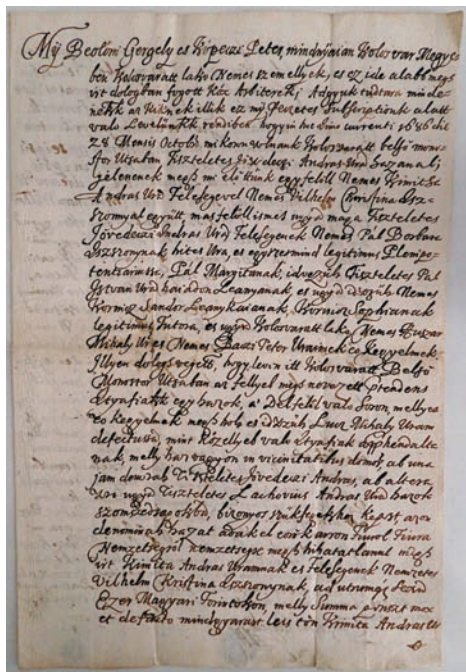 Mÿ Beolöni Gergely es Kirpeczi Peter, mindnyaian Kolosvar Megye
ben Kolosvaratt lako Nemes szemellyek, es ez ide alabb megh
irt dologban fogott Köz Arbiterek; Adgyuk tudtara minde
nek az kiknek illik ez my Pecsetes Subscriptionk alatt
valo Levelünknek rendiben hogy in hoc Anno currenti 1686 die
28 Mensis Octobr mikoron volnank Kolosvaratt belsö monos
tor Utsaban Tiszteletes Jövedeczi Andras Urā hazanal;
Jelenenek megh mi elöttünk egy felöll Nemes Kimita
Andras Urā Felesegevel Nemes Vilhelm Christina Asz-
szonnyal együtt, mas felöll ismet ugyā maga Tiszteletes
Jövedeczi Andras Urā Felesegenek Nemes Pal Borbara
Aszszonynak hites Ura, es egyszersmind legitimus Plenipo-
tentiariusa, Pal Margitanak, idvezült Tiszteletes Pal
Istvan Urā hajadon Leanyanak, es ugyā idvezült Nemes
Kornis Sandor Leanykaianak, Kornis Sophianak
legitimus Tutora, es ugyā Kolosvaratt lako Nemes Huszar
Mihaly Ur es Nemes Baczi Peter Uraimek eö Kegyelmek
Illyen dologh vegett, hogy levén itt Kolosvaratt Belsö
Monostor Utsaban az fellyel megh nevezett
Atyafiak egy hazok, a' Delfelöl valo Soron, mellyet
eö kegyelmek megh holt es idvezült Lucz Mihaly Uram
defectussa, mint közellyeb valo Atyafiak
nak, melly haz vagyon in vicinitatibus domorū, ab una
jam domorū Tiszteletes Jövedeczi Andras, ab altera
vero ugyā Tiszteletes Lachovius Andras Urā hazok
szomszedsagokbā, bizonyos szüksegekhez kepest azon
denominalt hazat adak el eörök arron Fiurol Fiura
Nemzetsegröl nemzetsegre megh hihatatlanul megh
irt Kimita Andras Uramnak es Felesegenek Nemzetes
Vilhelm Kristina Aszszonynak, ad utrumq Sexū
Ezer Magyari Forintokon, melly Summa penzt mox
et de facto mindgyarast le is tön Kimita Andras Ur